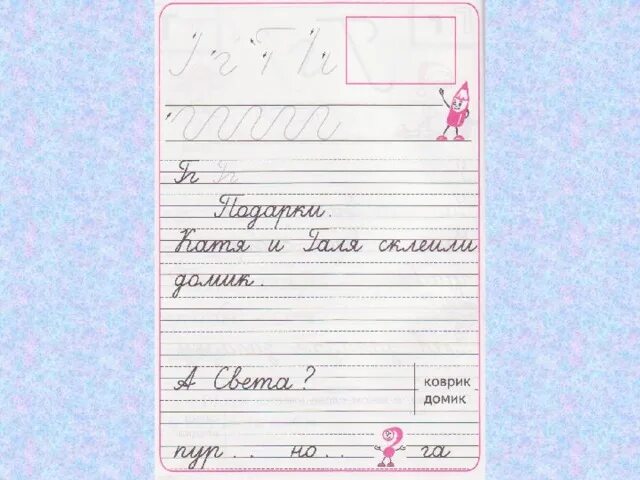 Г г Г г
Гг Гг
Подарки.
Катя и Галя склеили
домик.
А Света?
коврик
домик
пур . . но . . ? га